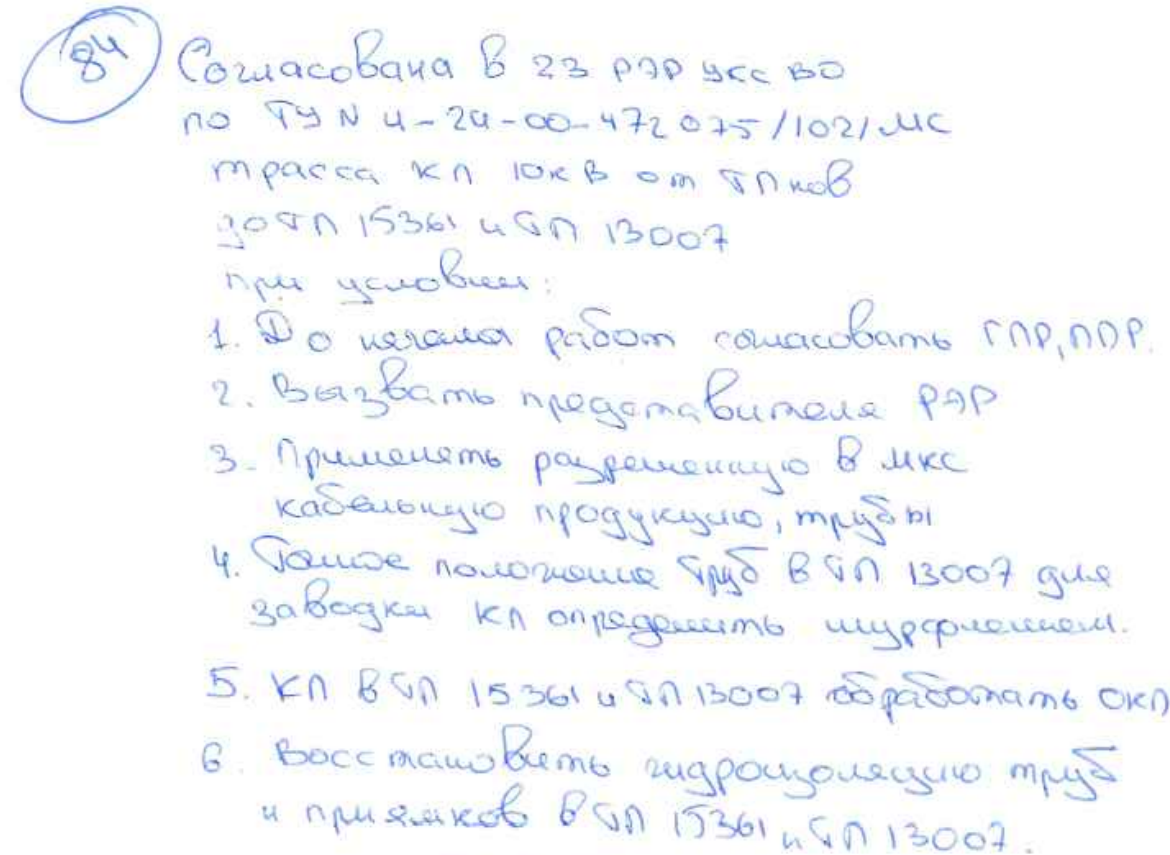 84
Согласована в 23 РЭР УКС ВО
по ТУ N И-24-00-472075/102/МС
трасса КЛ 10кВ от ТПнов
до ТП 15361 и ТП 13007
при условии:
1. До начала работ согласовать ГПР, ППР.
2. Вызвать представителя РЭР
3. Применять разрешенную в МКС
кабельную продукцию, трубы
4. Точное положение труб в ТП 13007 для
заводки КЛ определить шурфлением.
5. КЛ в ТП 15361 и ТП 13007 обработать ОКЛ
6. Восстановить гидроизоляцию труб
и приямков в ТП 15361 и ТП 13007.